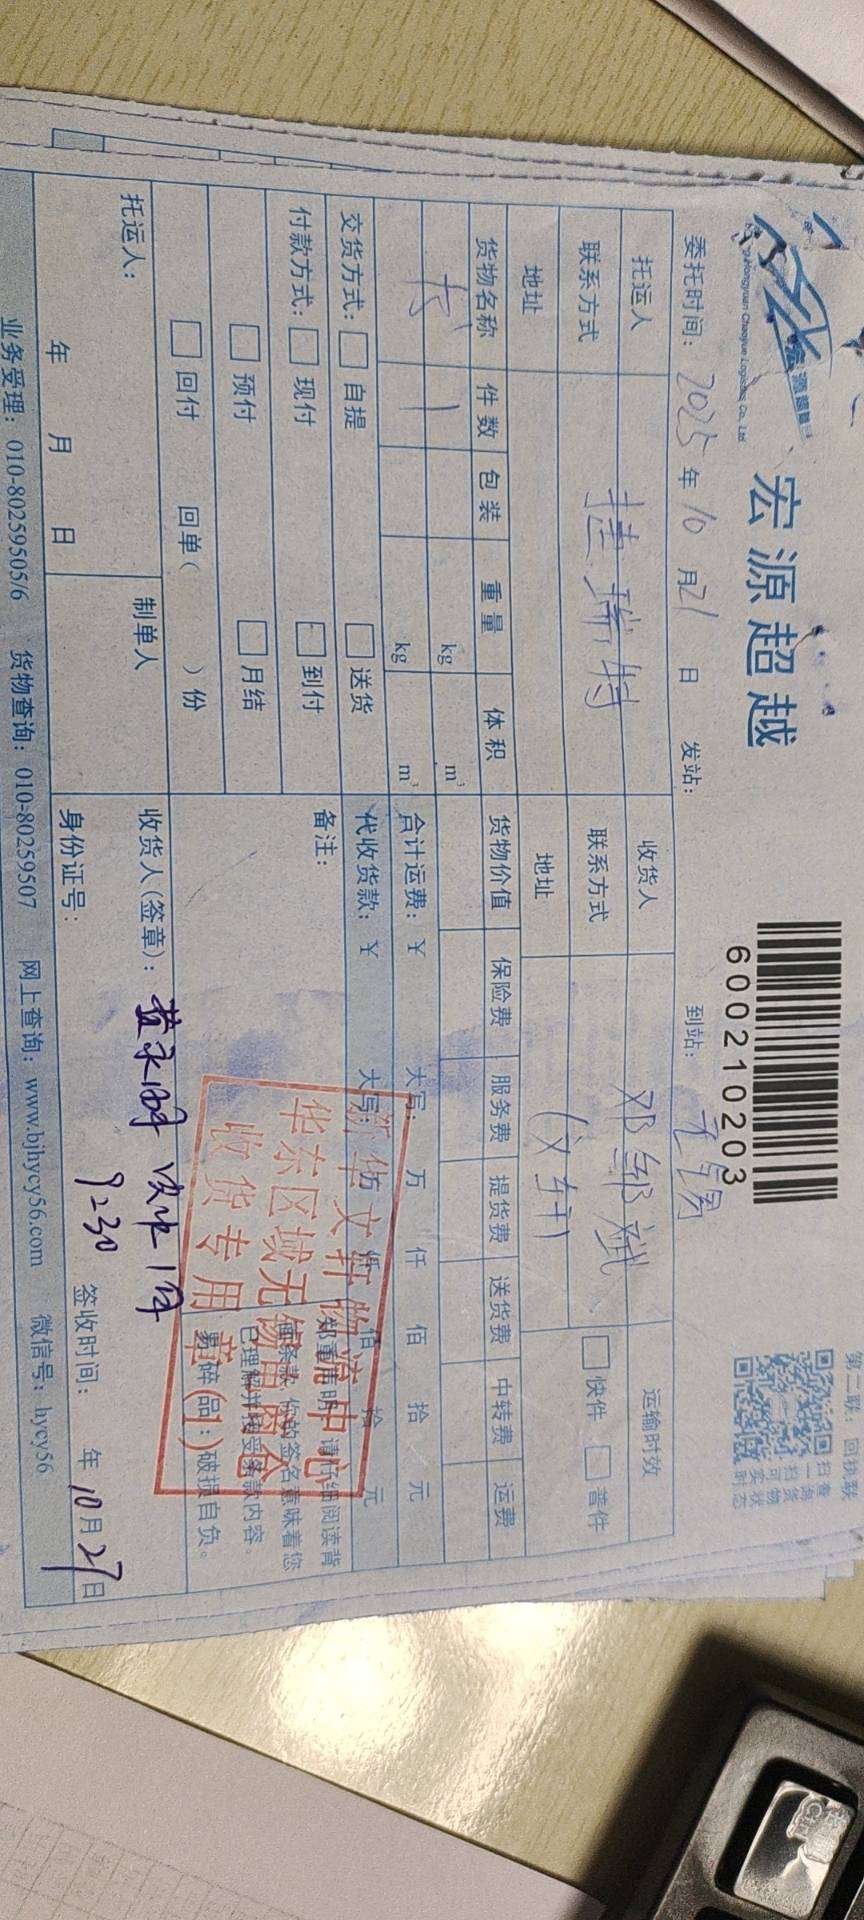 宏源超越
Hongyuan Chaoyue Logistics Co. Ltd
600210203
第二联：回执联
扫一扫 可实时
查询货物状态
委托时间：2025年10月21日 发站： 到站：无锡
托运人 捷瑞特 收货人 邓邹斌 运输时效
联系方式 联系方式 (文轩) 快件 普件
地址 地址
货物名称 件数 包装 重量 体积 货物价值 保险费 服务费 提货费 送货费 中转费 运费
书 1 kg m³
kg m³ 合计运费：￥ 大写： 万 仟 佰 拾 元
交货方式： 自提 送货 代收货款：￥ 大写： 万 仟 佰 拾 元
付款方式： 现付 到付 备注：
预付 月结
回付 回单( )份
郑重声明：请仔细阅读背
面条款，你的签名意味着您
已理解并接受条款内容。
易碎品：破损自负。
新华文轩物流中心
华东区域无锡
收货专用章(1)
托运人： 制单人 收货人(签章)： 收1件
9:30
年 月 日 身份证号： 签收时间： 年10月27日
业务受理：010-80259505/6 货物查询：010-80259507 网上查询：www.bjhycy56.com 微信号：hycy56